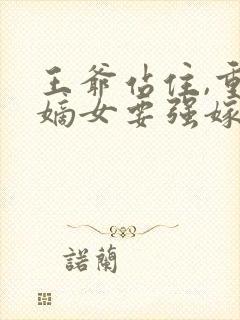 王爺站住,重
嫡女要強嫁
諾蘭